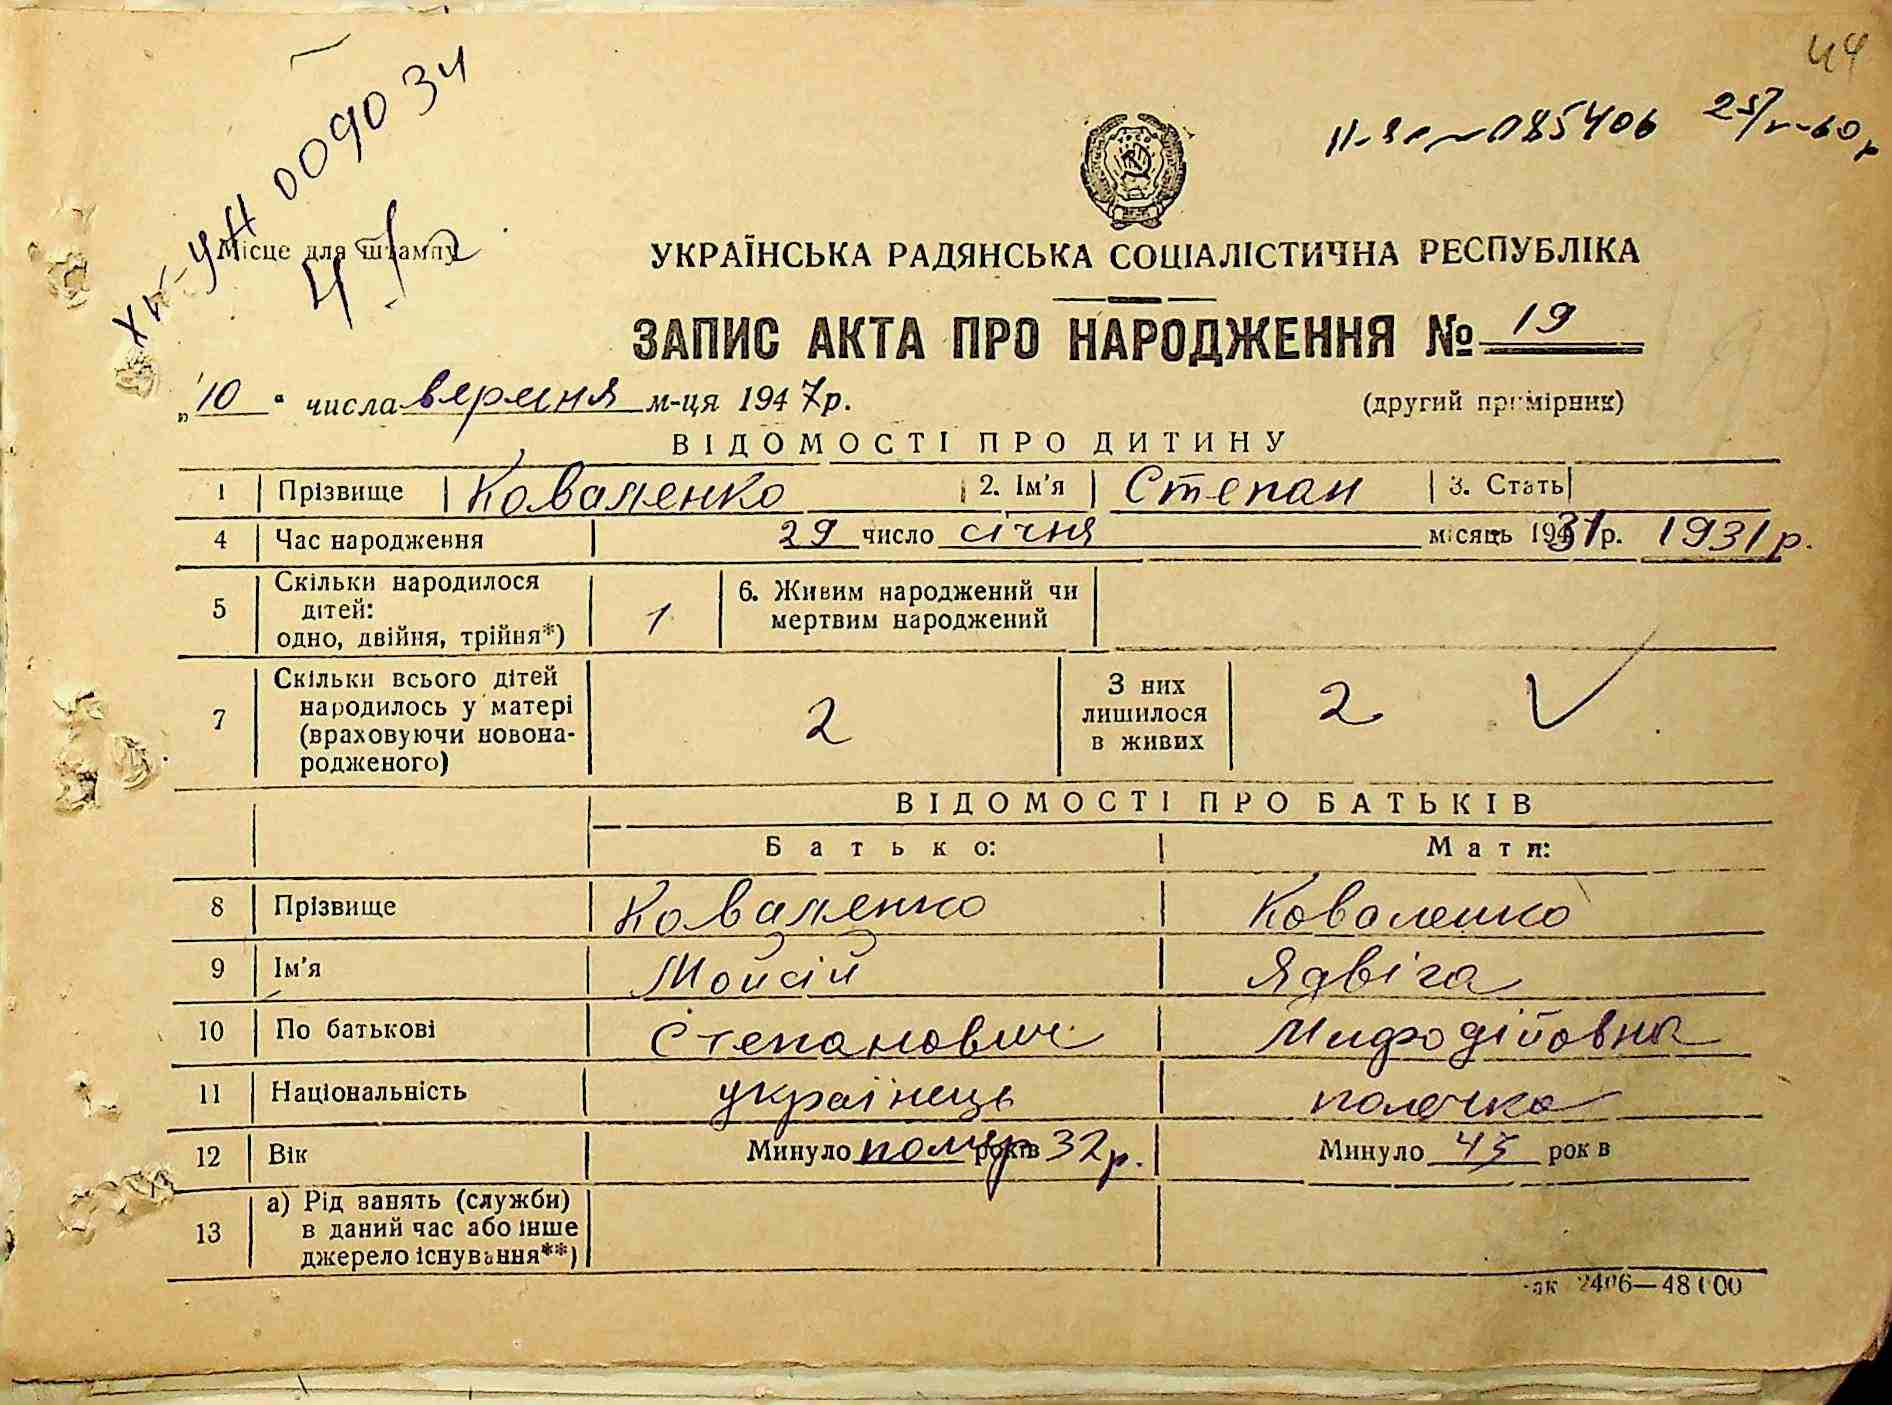 44
ХІІ-УН 009034
II-ЯС № 085406 25/V-60 р
Місце для штампу
УКРАЇНСЬКА РАДЯНСЬКА СОЦІАЛІСТИЧНА РЕСПУБЛІКА
ЗАПИС АКТА ПРО НАРОДЖЕННЯ № 19
„10“ числа вересня м-ця 1947р.
(другий примірник)
ВІДОМОСТІ ПРО ДИТИНУ
1 Прізвище Коваленко 2. Ім'я Степан 3. Стать
4 Час народження 29 число січня місяць 1931р. 1931 р.
5 Скільки народилося дітей: одно, двійня, трійня*) 1 6. Живим народжений чи мертвим народжений
7 Скільки всього дітей народилось у матері (враховуючи новонародженого) 2 З них лишилося в живих 2
ВІДОМОСТІ ПРО БАТЬКІВ
Батько: Мати:
8 Прізвище Коваленко Коваленко
9 Ім'я Мойсій Ядвіга
10 По батькові Степанович Мифодіївна
11 Національність українець полячка
12 Вік Минуло помер років 32 р. Минуло 45 рок в
13 а) Рід занять (служби) в даний час або інше джерело існування**)
ак 2406—48000